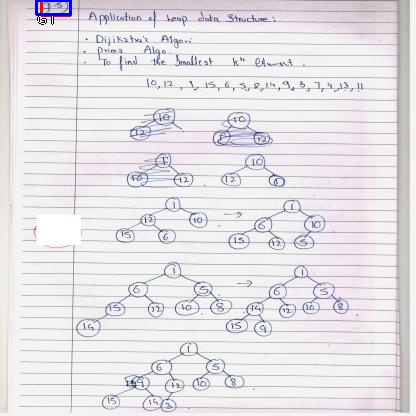 Application of heap data structure:
• Dijikstra's Algo.
• prims Algo.
• To find the smallest kth element.
10, 12, 1, 15, 6, 5, 8, 14, 9, 3, 7, 4, 13, 11
10 10
12 12
1 10
10 12 12 1
1 → 1
12 10 6 10
15 6 15 12 5
1 → 1
6 5 6 5
15 12 10 8 14 12 10 8
14 15 9
1
6 5
9 12 10 8
15 14 3